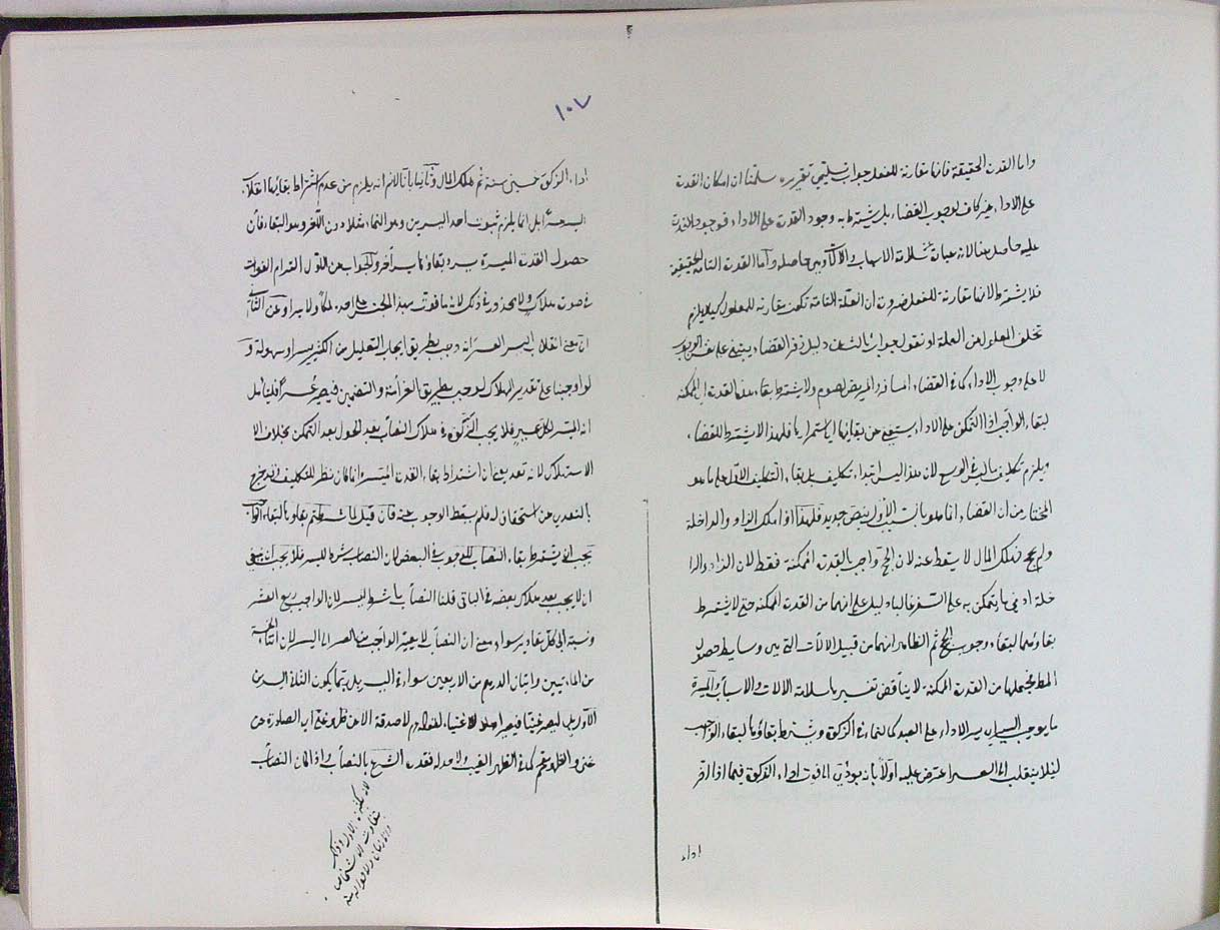 واما القدرة الحقيقة فانها مقارنة للفعل جواب تسليمى تقريره سلمنا ان امكان القدرة
على الاداء غير كاف لوجوب القضاء بل يشترط به وجود القدرة على الاداء فوجود القدرة
عليه حاصل هنا لانه عبارة عن سلامة الاسباب والآلات وهى حاصلة واما القدرة التامة الحقيقية
فلا يشترط لانها مقارنة للفعل ضرورة ان العلة التامة تكون مقارنة للمعلول كيلا يلزم
تخلف المعلول عن العلة او نقول جواب بالثبات دليل زفر القضاء يبتنى على نفس الوجوب
لا على وجوب الاداء كما فى القضاء المسافر والمريض لصوم ولا يشترط بقاء هذه القدرة اى الممكنة
لبقاء الواجب اذا التمكن على الاداء يستغنى عن بقائها اى استمرارها فلهذا لا يشترط للقضاء
ويلزم تكليف ما ليس فى الوسع لان هذا ليس ابتداء تكليف بل بقاء التكليف الاول على ما هو
المختار من ان القضاء انما هو بالسبب الاول لا بنص جديد فلهذا اذا ملك الزاد والراحلة
ولم يحج فهلك المال لا يسقط عنه لان الحج واجب بالقدرة الممكنة فقط لان الزاد والرا
حلة ادنى ما يتمكن به على السفر غالبا دليل على انهما من القدرة الممكنة حتى لا يشترط
بقاؤهما لبقاء وجوب الحج ثم الظاهر انهما من قبيل الآلات التى هى وسايط حصول
المط فجعلهما من القدرة الممكنة لا يناقض تفسيرها بسلامة الالات والاسباب والميسرة
ما يوجب اليسر على الاداء على العبد كالنماء فى الزكوة ويشترط بقاؤها لبقاء الواجب
ليلا ينقلب الى العسر اعترض عليه اولا بانه يؤدى الى فوت اداء الزكوة فيما اذا اخر
اداء
١٠٧
اداء الزكوة خمسين سنة ثم هلك المال وثانيا بانا لا نم انه يلزم من عدم اشتراط بقائها انقلاب
اليسر عسرا بل انما يلزم ثبوت احد اليسرين وهو النماء مثلا دون الآخر وهو البقاء فان
حصول القدرة الميسرة يسر وبقاؤها يسر آخر والجواب عن الاول التزام الفوات
فى صورة هلاك ولا محذور فى ذلك لانه ما فوت بهذا الحبس على احد ملكا ولا يدا وعن الثانى
ان معنى انقلاب اليسر العسر انه وجب بطريق ايجاب القليل من الكثير يسرا وسهولة و
لو اوجبنا على تقدير الهلاك لوجب بطريق الغرامة والتضمين فيصير عسرا فليتأمل
انه الميسر لكل عسير فلا يجب الزكوة فى هلاك النصاب بعد الحول بعد التمكن بخلاف الا
الاستهلاك لانه تعد يعنى ان اشتراط بقاء القدرة الميسرة انما كان نظرا للمكلف فقد خرج
بالتعدى عن استحقاق له فلم يسقط الوجوب عنه فان قيل لما شرطتم بقاءها لبقاء الواجب
يجب ان يشترط بقاء النصاب للوجوب فى البعض لان النصاب شرط لليسر فلا يجب ينبغى
ان لا يجب بعد هلاك بعضه فى الباقى قلنا النصاب ما شرط لليسر لان الواجب ربع العشر
ونسبة الى كل مقادير سواء معنى ان النصاب لا يغير الواجب من العسر الى اليسر لان ايتاء الخمسة
من المائتين وايتاء الدرهم من الاربعين سواء فى اليسر بل
الا ليصير غنيا فيصير اهلا للاغناء لقوله عم لا صدقة الا عن ظهر غنى اى الصادرة عن
غنى والظهر مقحم كما فى ظهر الغيب ولا حد له فقدره الشرع بالنصاب واذا كان النصاب